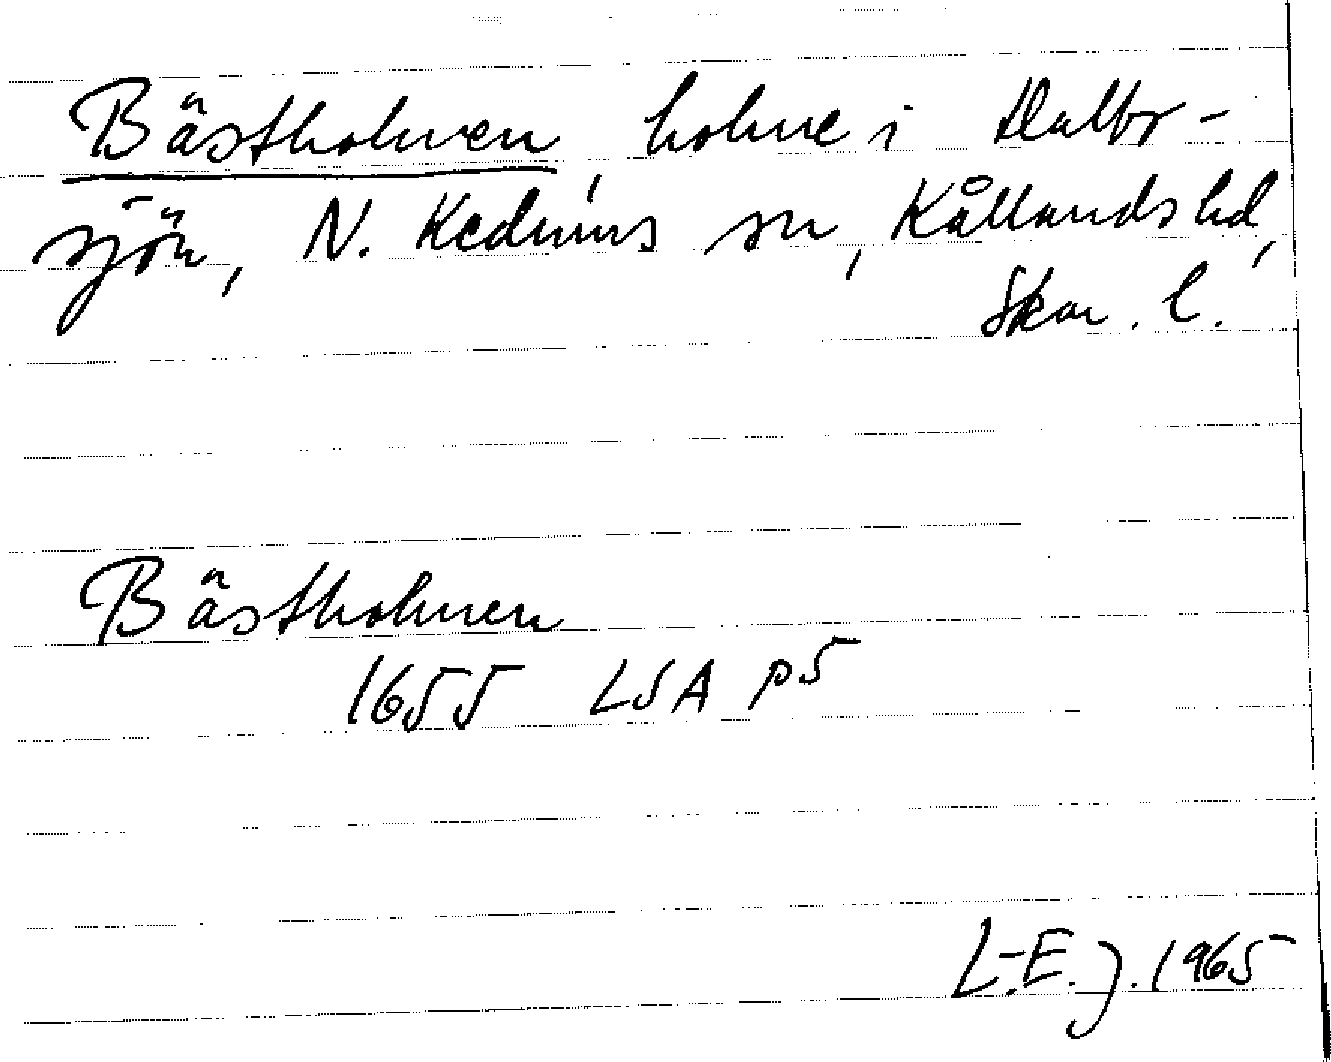 Bästholmen, holme i Dalbo-
sjön, N. Kedums sn, Kållands hd,
Skar. l.
Bästholmen
1655 LSA p5
L-E. J. 1965